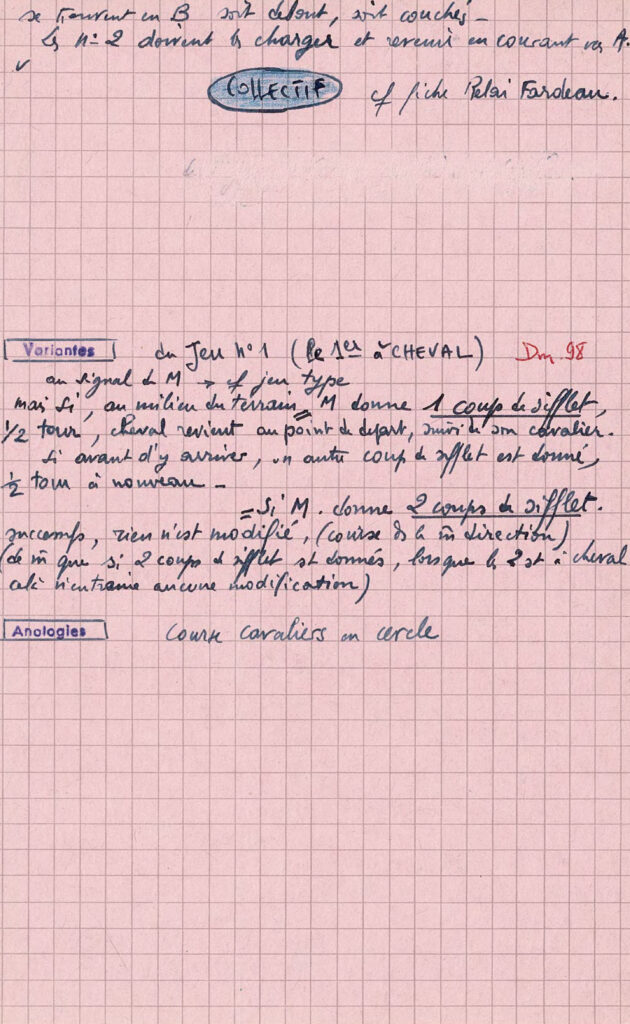 se trouvent en B soit debout, soit couchés -
Les n° 2 doivent les charger et revenir en courant vers A.
COLLECTIF cf fiche Relai Fardeau.
Variantes du Jeu n° 1 (le 1er à CHEVAL) Dm 98
au signal de M → cf jeu type
mais si, au milieu du terrain = M donne 1 coup de sifflet,
1/2 tour, cheval revient au point de départ, suivi de son cavalier.
Si avant d'y arriver, un autre coup de sifflet est donné,
1/2 tour à nouveau -
= Si M. donne 2 coups de sifflet.
successifs, rien n'est modifié, (course ds la m̄ direction)
(de m̄ que si 2 coups de sifflet st donnés, lorsque les 2 st à cheval
celà n'entraine aucune modification)
Analogies Course cavaliers en cercle